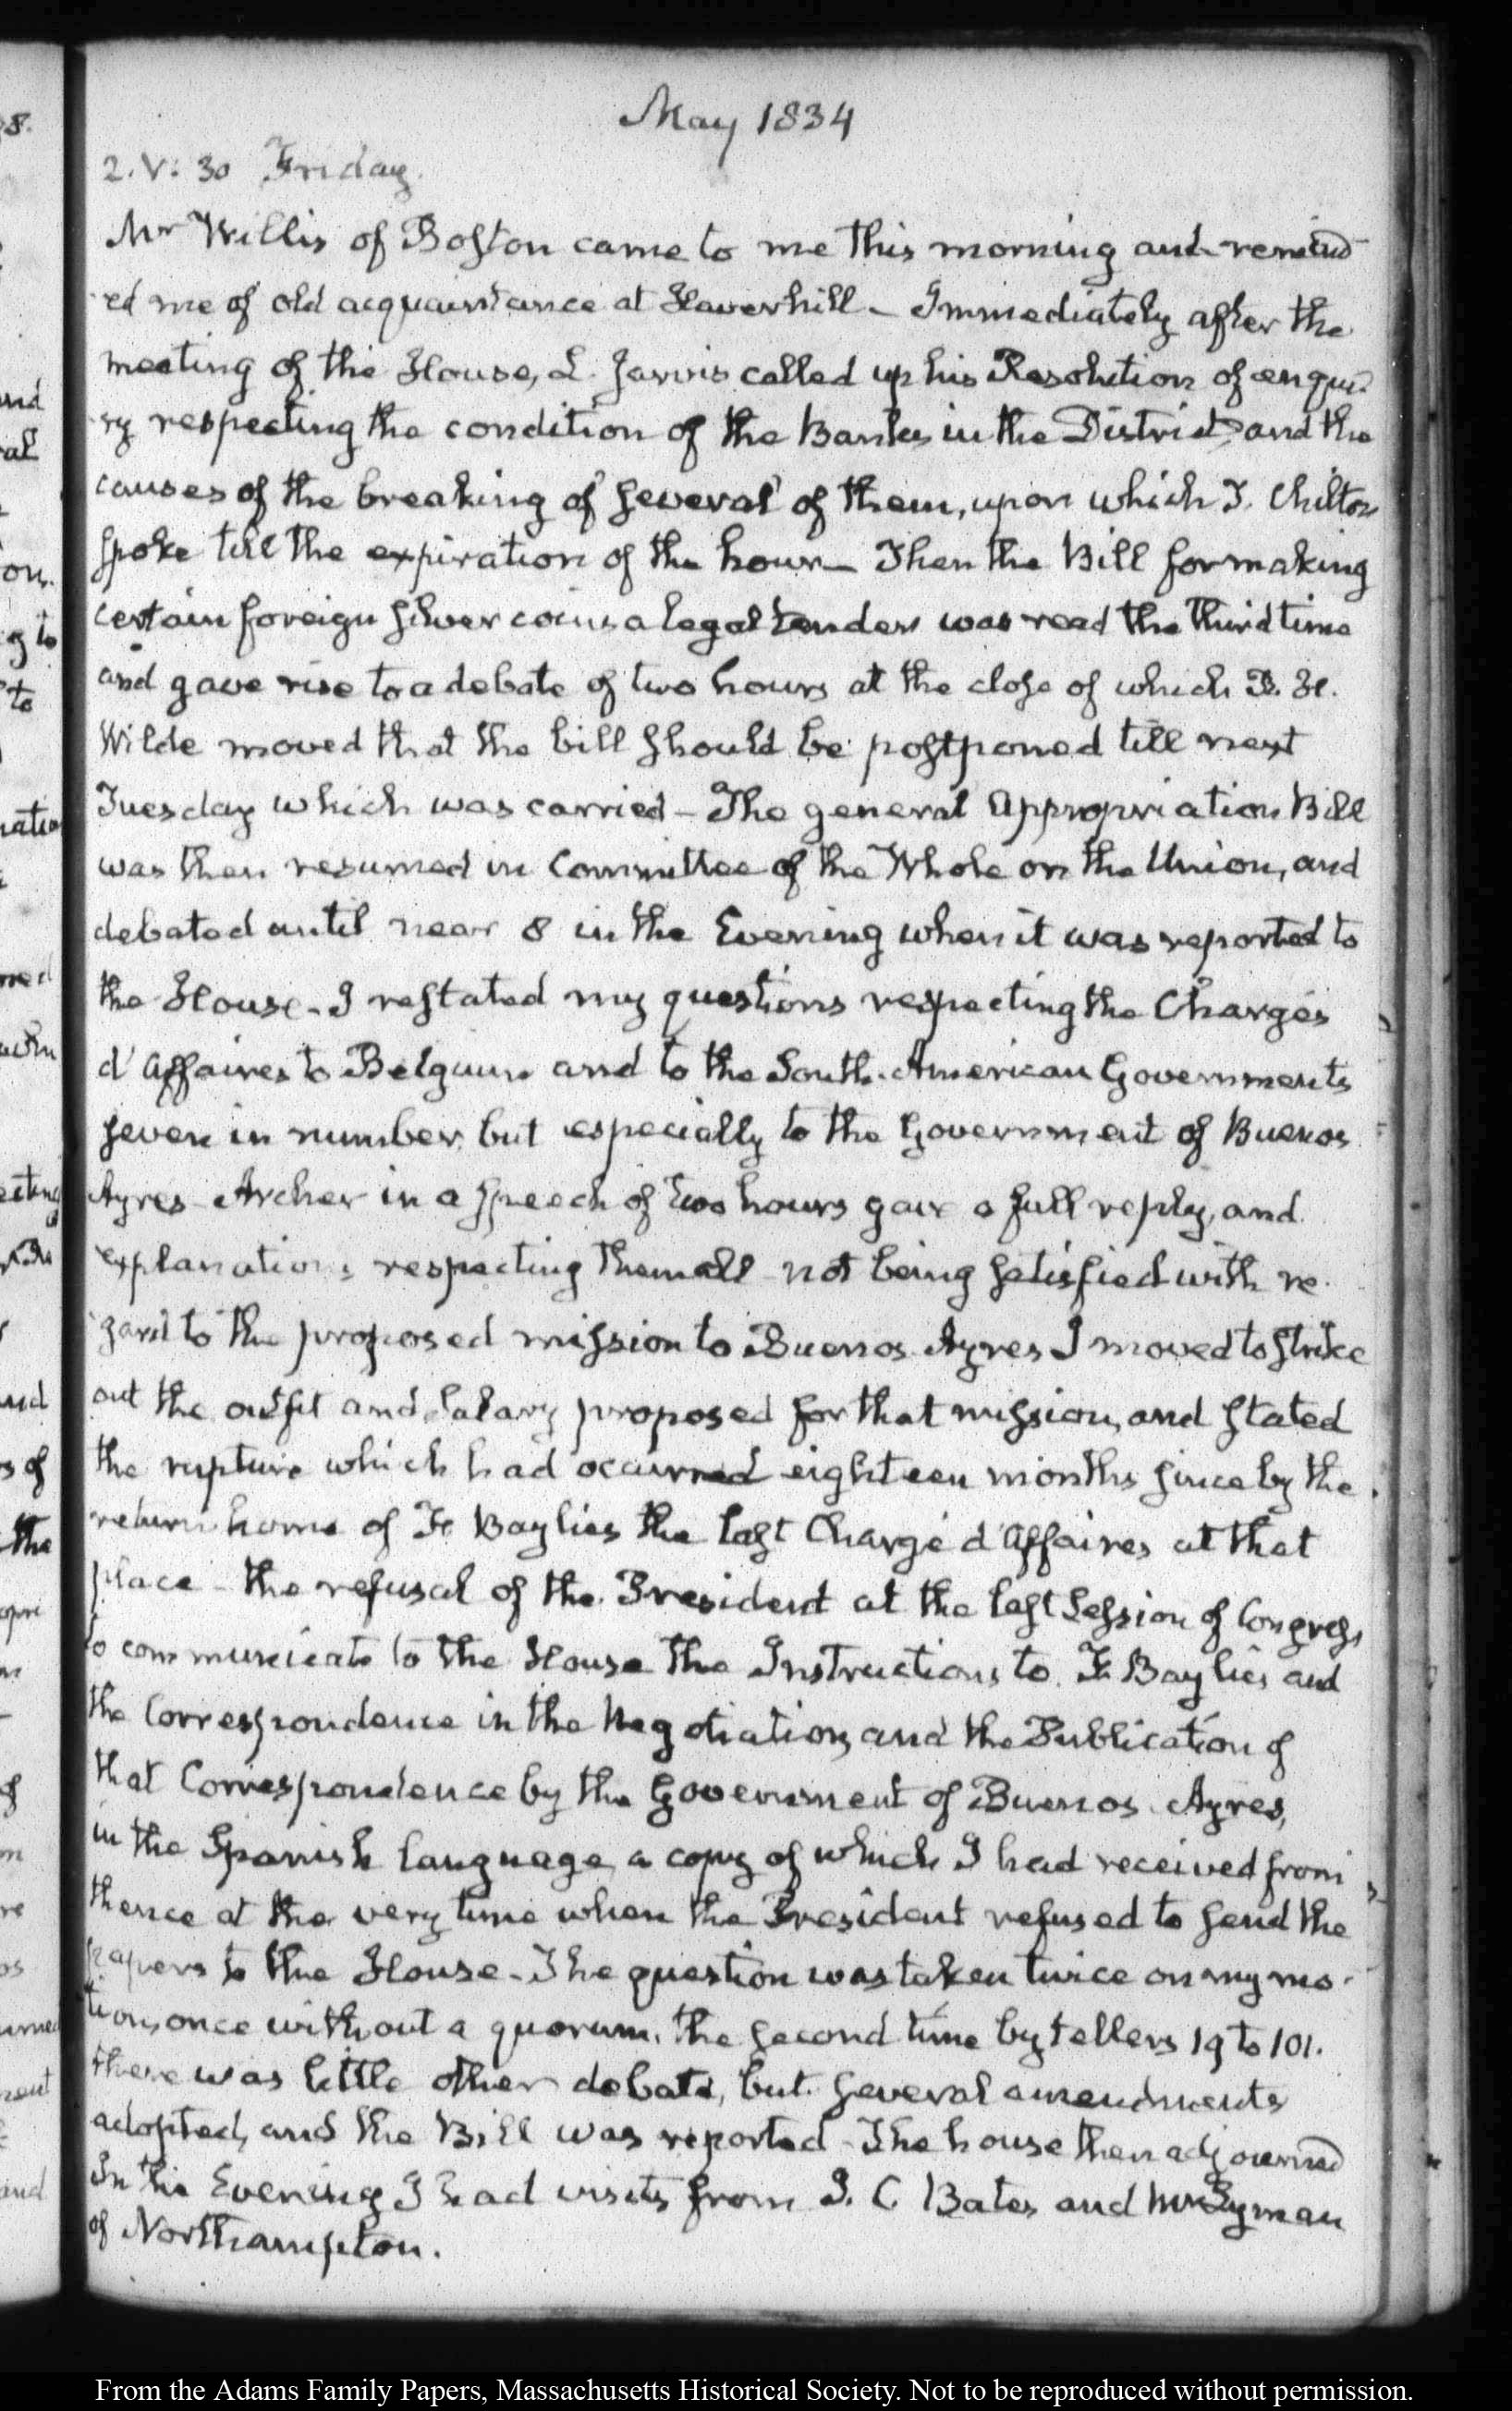 May 1834
2. V: 30 Friday.
Mr Willis of Boston came to me this morning and remind
ed me of old acquaintance at Haverhill – Immediately after the
meeting of the House, L. Jarvis called up his Resolution of enqui-
ry respecting the condition of the Banks in the District and the
causes of the breaking of several of them, upon which T. Chilton
spoke till the expiration of the hour – Then the Bill for making
certain foreign silver coins a legal tender was read the third time
and gave rise to a debate of two hours at the close of which R. H.
Wilde moved that the bill should be postponed till next
Tuesday which was carried – The general Appropriation Bill
was then resumed in Committee of the Whole on the Union, and
debated until near 8 in the Evening when it was reported to
the House – I restated my questions respecting the Chargés
d'Affaires to Belgium and to the South-American Governments
seven in number but especially to the Government of Buenos
Ayres – Archer in a speech of two hours gave a full reply, and
explanations respecting them all – not being satisfied with re-
gard to the proposed mission to Buenos Ayres I moved to strike
out the outfit and salary proposed for that mission, and stated
the rupture which had occurred eighteen months since by the
return home of F. Baylies the last Chargé d'Affaires at that
place – the refusal of the President at the last Session of Congress
to communicate to the House the Instructions to F. Baylies and
the Correspondence in the Negotiation, and the Publication of
that Correspondence by the Government of Buenos Ayres,
in the Spanish language, a copy of which I had received from
thence at the very time when the President refused to send the
papers to the House – The question was taken twice on my mo-
tion, once without a quorum, the second time by tellers 19 to 101.
there was little other debate, but several amendments
adopted, and the Bill was reported – The house then adjourned
In the Evening I had visits from I. C. Bates and Mr Lyman
of Northampton.
From the Adams Family Papers, Massachusetts Historical Society. Not to be reproduced without permission.